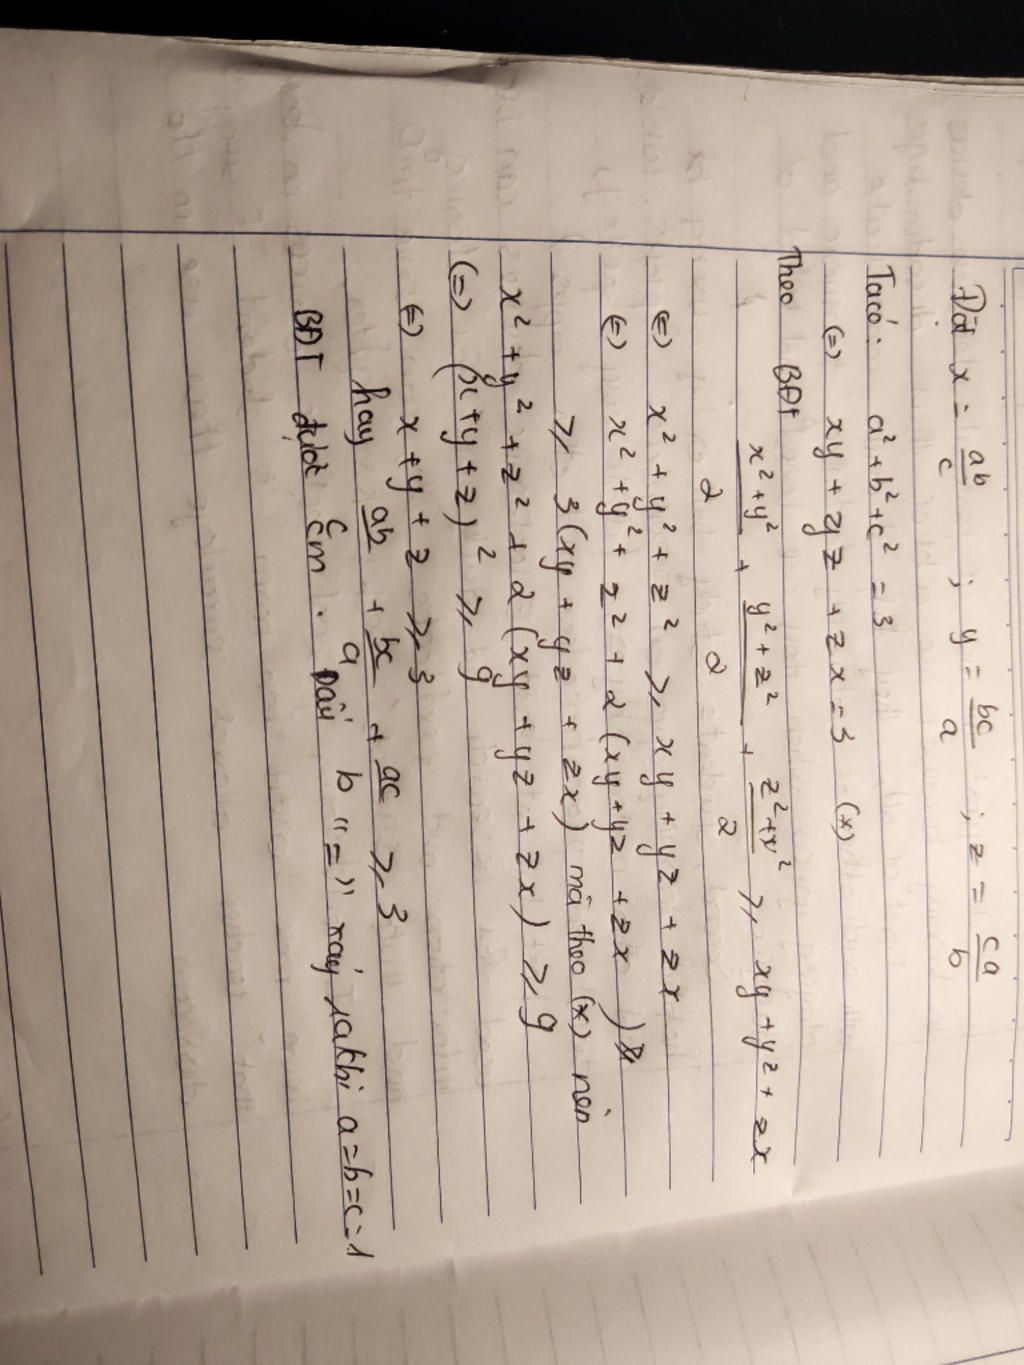 Đặt x = ab/c ; y = bc/a ; z = ca/b
Ta có: a² + b² + c² = 3
(=) xy + yz + zx = 3 (*)
Theo BĐT
x² + y²/2 + y² + z²/2 + z² + x²/2 ⩾ xy + yz + zx
(=) x² + y² + z² ⩾ xy + yz + zx
(=) x² + y² + z² + 2(xy + yz + zx)
⩾ 3(xy + yz + zx) mà theo (*) nên
x² + y² + z² + 2(xy + yz + zx) ⩾ 9
(=) (x + y + z)² ⩾ 9
(=) x + y + z ⩾ 3
hay ab/c + bc/a + ac/b ⩾ 3
BĐT được cm. Dấu "=" xảy ra khi a = b = c = 1